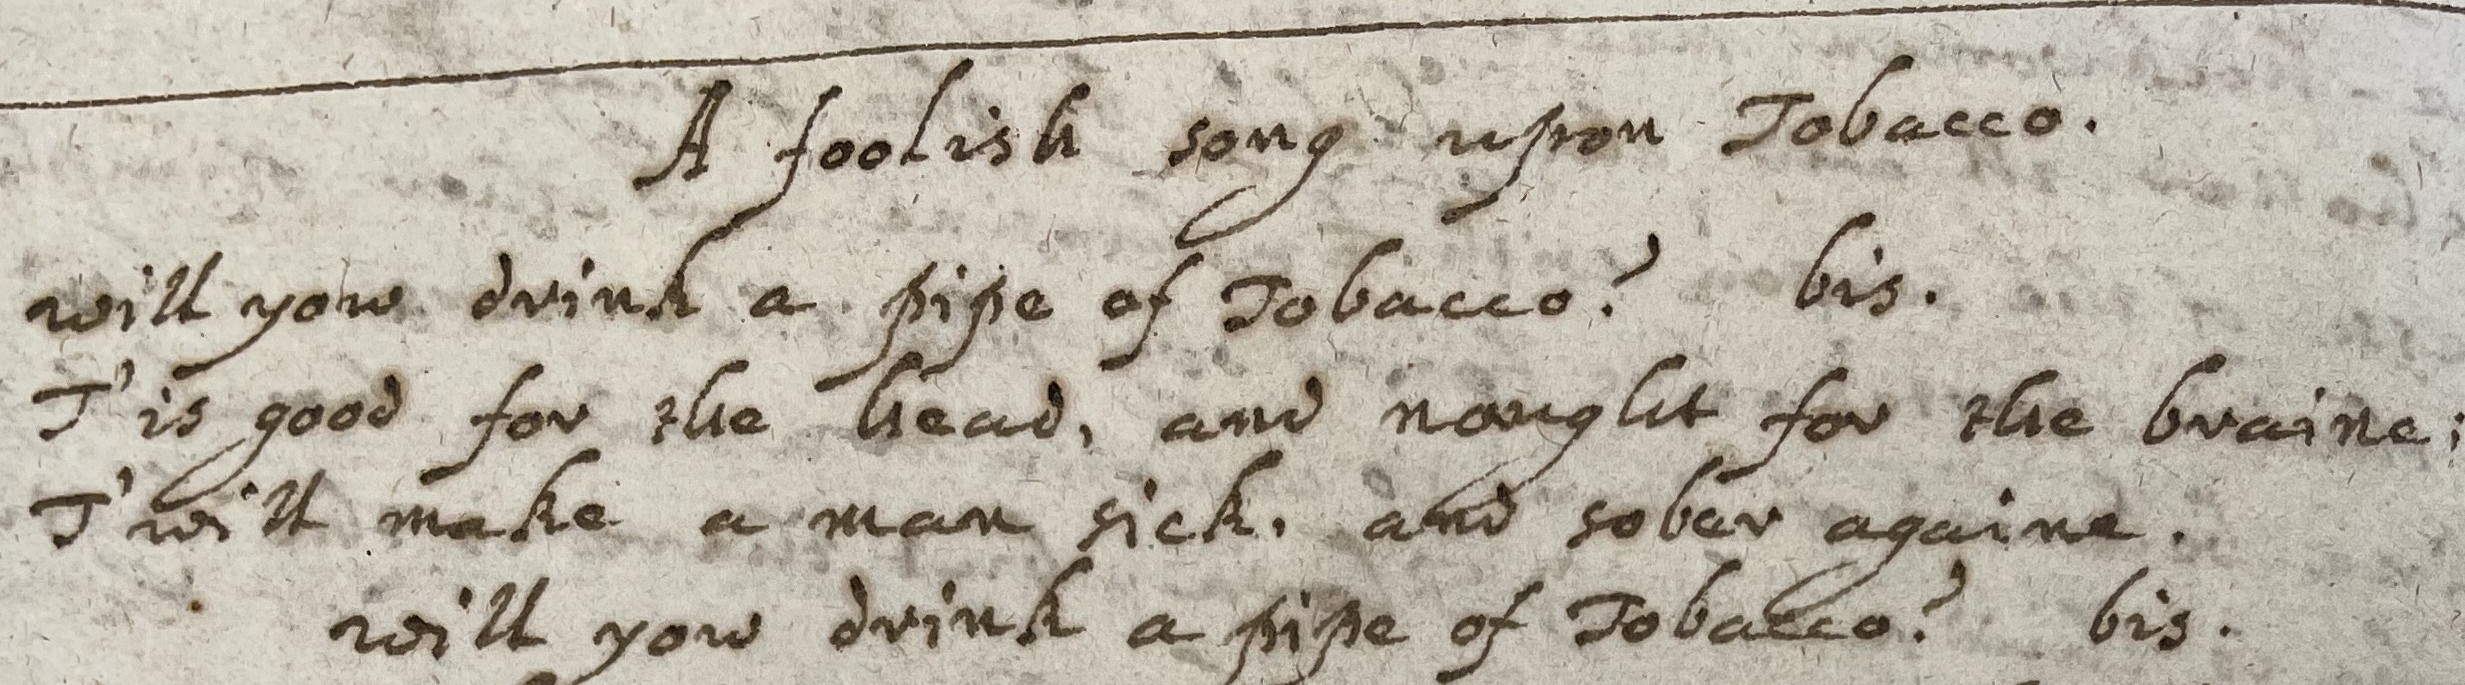 A foolish song upon Tobacco.
will yow drink a pipe of Tobacco? bis.
T'is good for the head, and nought for the braine;
T'will make a man sick, and sober againe.
will yow drink a pipe of Tobacco? bis.